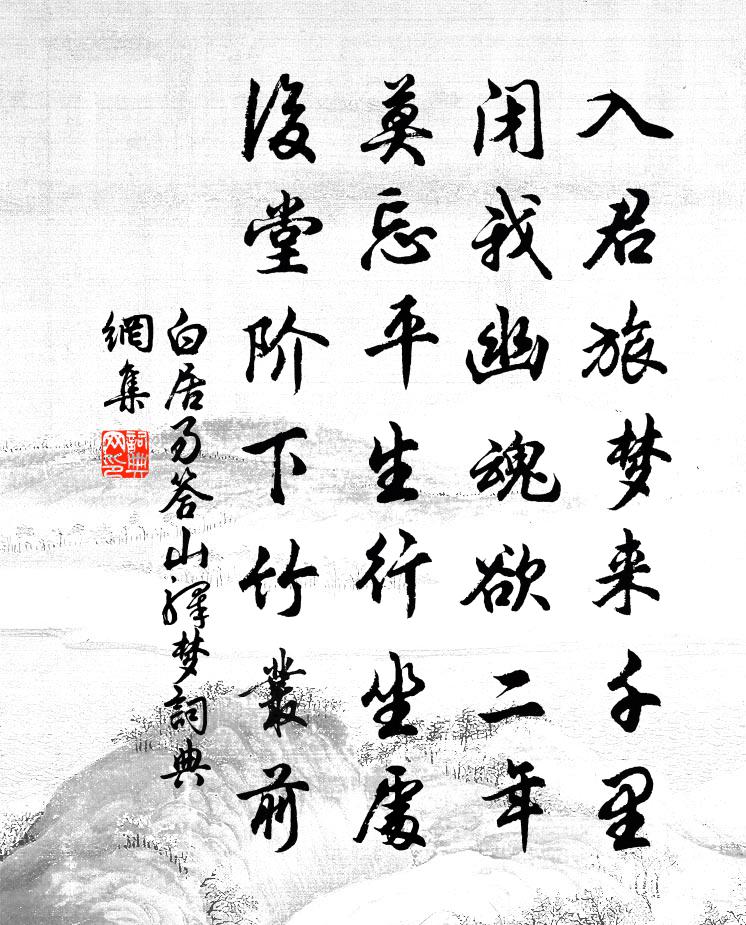 入君旅梦来千里
闭我幽魂欲二年
莫忘平生行坐處
後堂阶下竹叢前
白居易答山驿梦詞典
網集
詞典网印